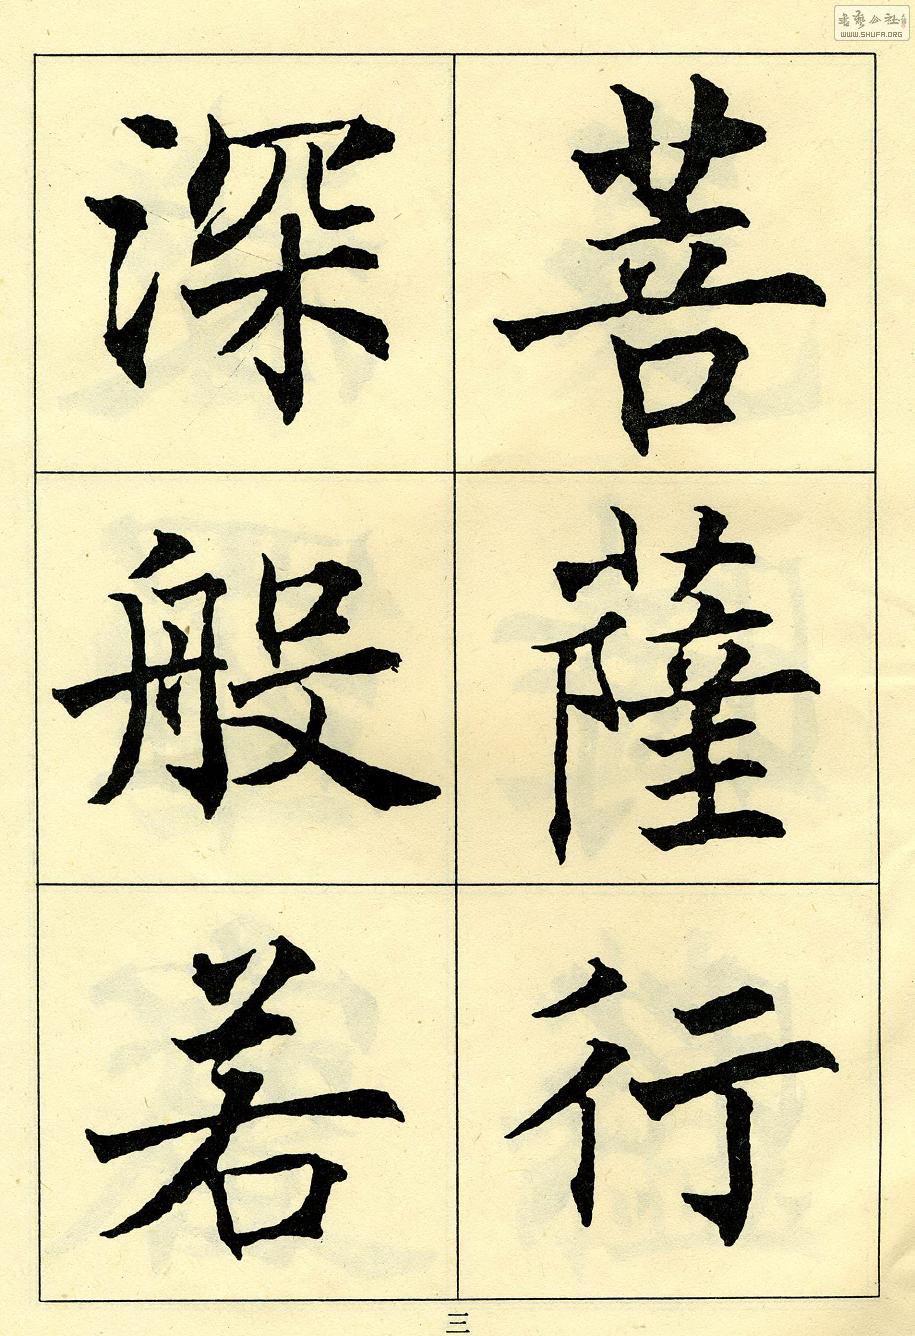 菩薩行
深般若
三
書藝公社
WWW.SHUFA.ORG